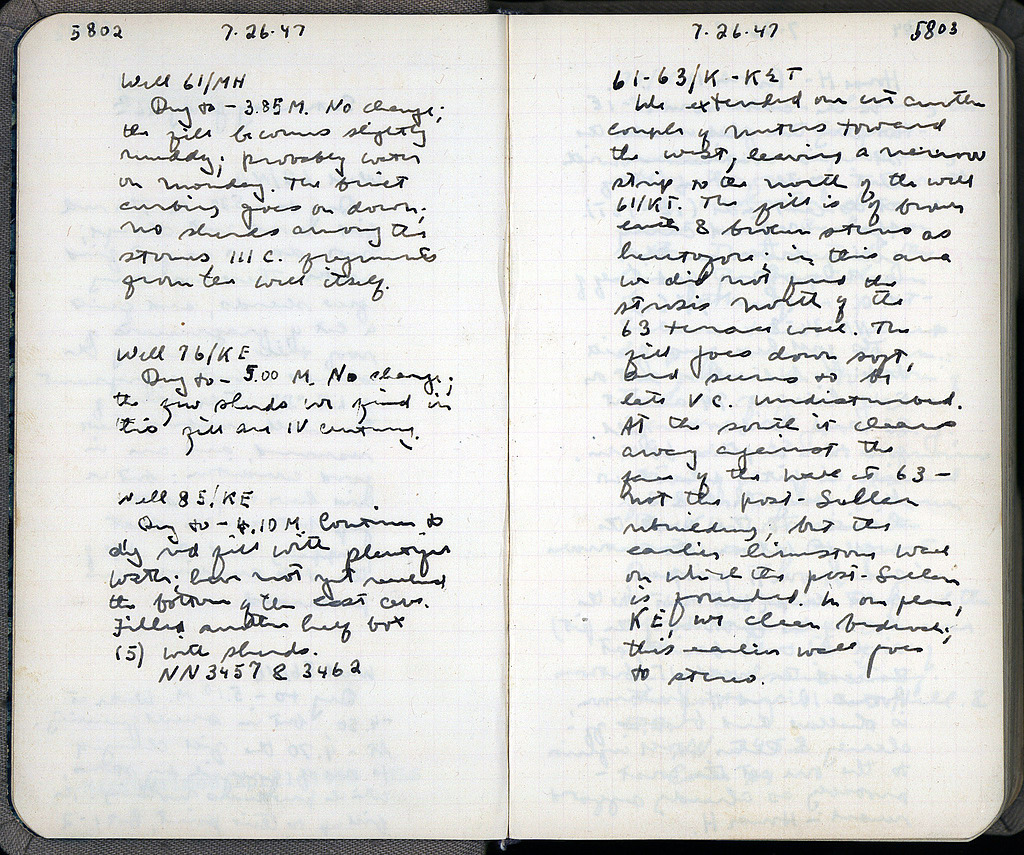 5802 7·26·47
Well 61/MH
Dug to - 3.85 M. No change;
the fill becomes slightly
muddy; probably water
on Monday. The brick
curbing goes on down;
no sherds among the
stones III C. fragments
from the well itself.
Well 76/KE
Dug to - 5.00 M. No change;
the few sherds we find in
this fill are IV century.
Well 85/KE
Dug to - 4.10 M. Continue to
dig red fill with plentiful
water; have not yet reached
the bottom of the east cave.
Filled another half box
(5) with sherds.
NN 3457 & 3462
7·26·47 5803
61-63/K-KΣT
We extended our cut another
couple of meters toward
the west, leaving a narrow
strip to the north of the well
61/KT. The fill is of brown
earth & broken stones as
heretofore; in this area
we did not find the
strosis north of the
63 terrace wall. The
fill goes down soft,
and seems to be
late V C. undisturbed.
At the south it cleans
away against the
face of the wall at 63 -
not the post-Sullan
rebuilding, but the
earlier limestone wall
on which the post-Sullan
is founded. In one place,
KE, we clean bedrock;
this earlier wall goes
to stereo.